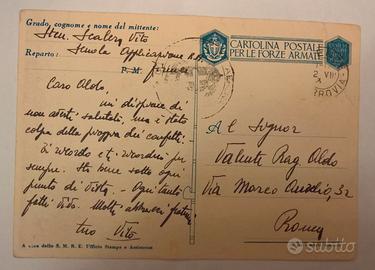 Grado, cognome e nome del mittente:
Sten. Scalera Vito
Reparto: Scuola Applicazione A.A.
P. M. Firenze
CARTOLINA POSTALE
PER LE FORZE ARMATE
Caro Aldo,
mi dispiace di
non averti salutato, ma è stato
colpa della pioggia dei confetti.
Ti ricordo e ti ricorderò per
sempre. Sto bene sotto ogni
punto di vista - Ogni tanto
fatti vivo. Molti abbracci
tuo Vito
A cura dello S. M. R. E. Ufficio Stampa e Assistenza
2 VIII
FERROVIA
Al Signor
Valente Rag Aldo
Via Marco Aurelio, 32
Roma
subito